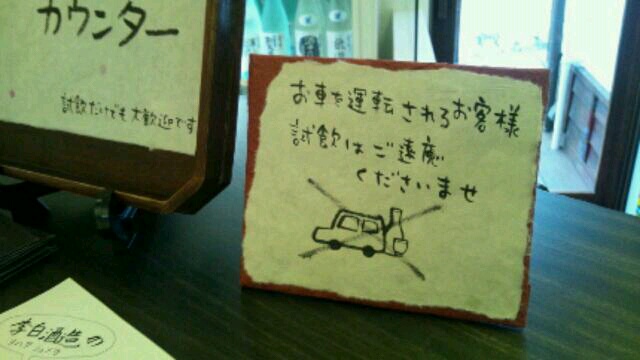 カウンター
試飲だけでも大歓迎です
お車を運転されるお客様
試飲はご遠慮
くださいませ
李白酒造の